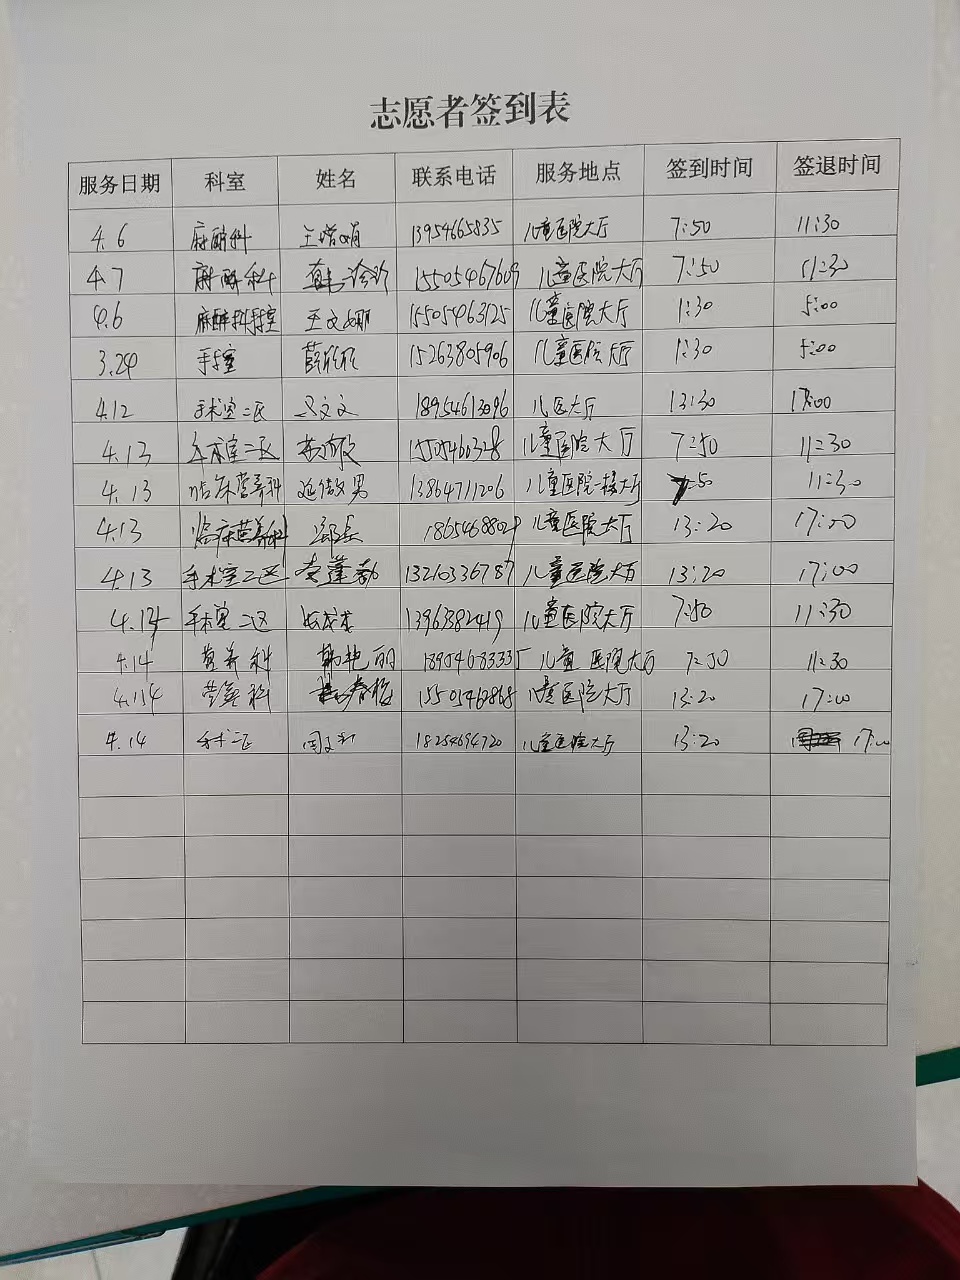 志愿者签到表
服务日期 科室 姓名 联系电话 服务地点 签到时间 签退时间
4.6 麻醉科 13954665835 儿童医院大厅 7:50 11:30
4.7 麻醉科 15505467609 儿童医院大厅 7:50 11:30
4.6 麻醉科 王文娜 15505463125 儿童医院大厅 1:30 5:00
3.24 薛欣欣 15263805906 儿童医院大厅 1:30 5:00
4.12 手术室二区 文文 18954613096 儿医大厅 13:30 17:00
4.13 手术室二区 儿童医院大厅 7:50 11:30
4.13 临床营养科 男 13864711206 儿童医院一楼大厅 11:30
4.13 临床营养科 儿童医院大厅 13:20 17:00
4.13 手术室二区 13210336787 儿童医院大厅 13:20 17:00
手术室二区 13963382419 儿童医院大厅 7:50 11:30
4.14 营养科 韩艳丽 18954683335 儿童医院大厅 7:50 11:30
4.14 营养科 儿童医院大厅 13:20 17:00
4.14 手术二区 18254694720 儿童医院大厅 13:20 17:00